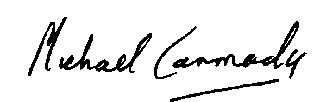 Michael Carmody